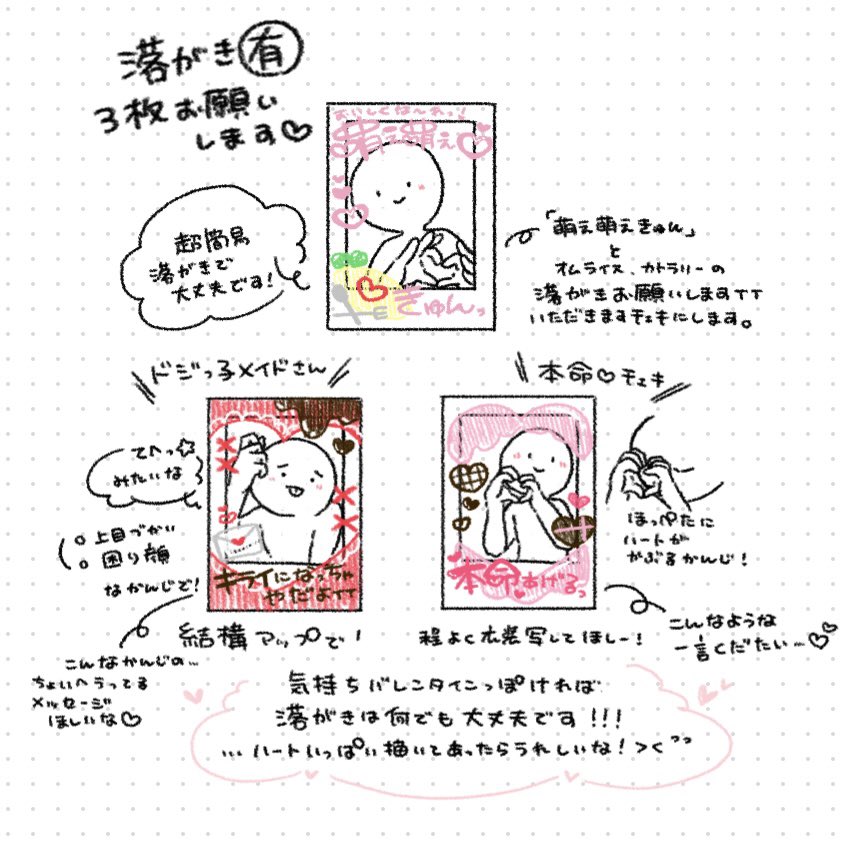 落がき有
3枚お願い
します♡
おいしくなーれっ!
萌え萌え♡
きゅんっ
超簡易
落がきで
大丈夫です!
「萌え萌えきゅん」
と
オムライス、カトラリーの
落がきお願いしますTT
いただきますチェキにします。
ドジっ子メイドさん
てへっ☆
みたいな
○上目づかい
○困り顔
なかんじで!
キライになっちゃ
やだよTT
結構アップで!
こんなかんじの…
ちょいヘラってる
メッセージ
ほしいな♡
本命♡チェキ
本命あげるっ
ほっぺたに
ハートが
かぶるかんじ!
程よく衣装写してほしー!
こんなような
一言くだたい…♡♡
気持ちバレンタインっぽければ
落がきは何でも大丈夫です!!!
…ハートいっぱい描いてあったらうれしいな!><